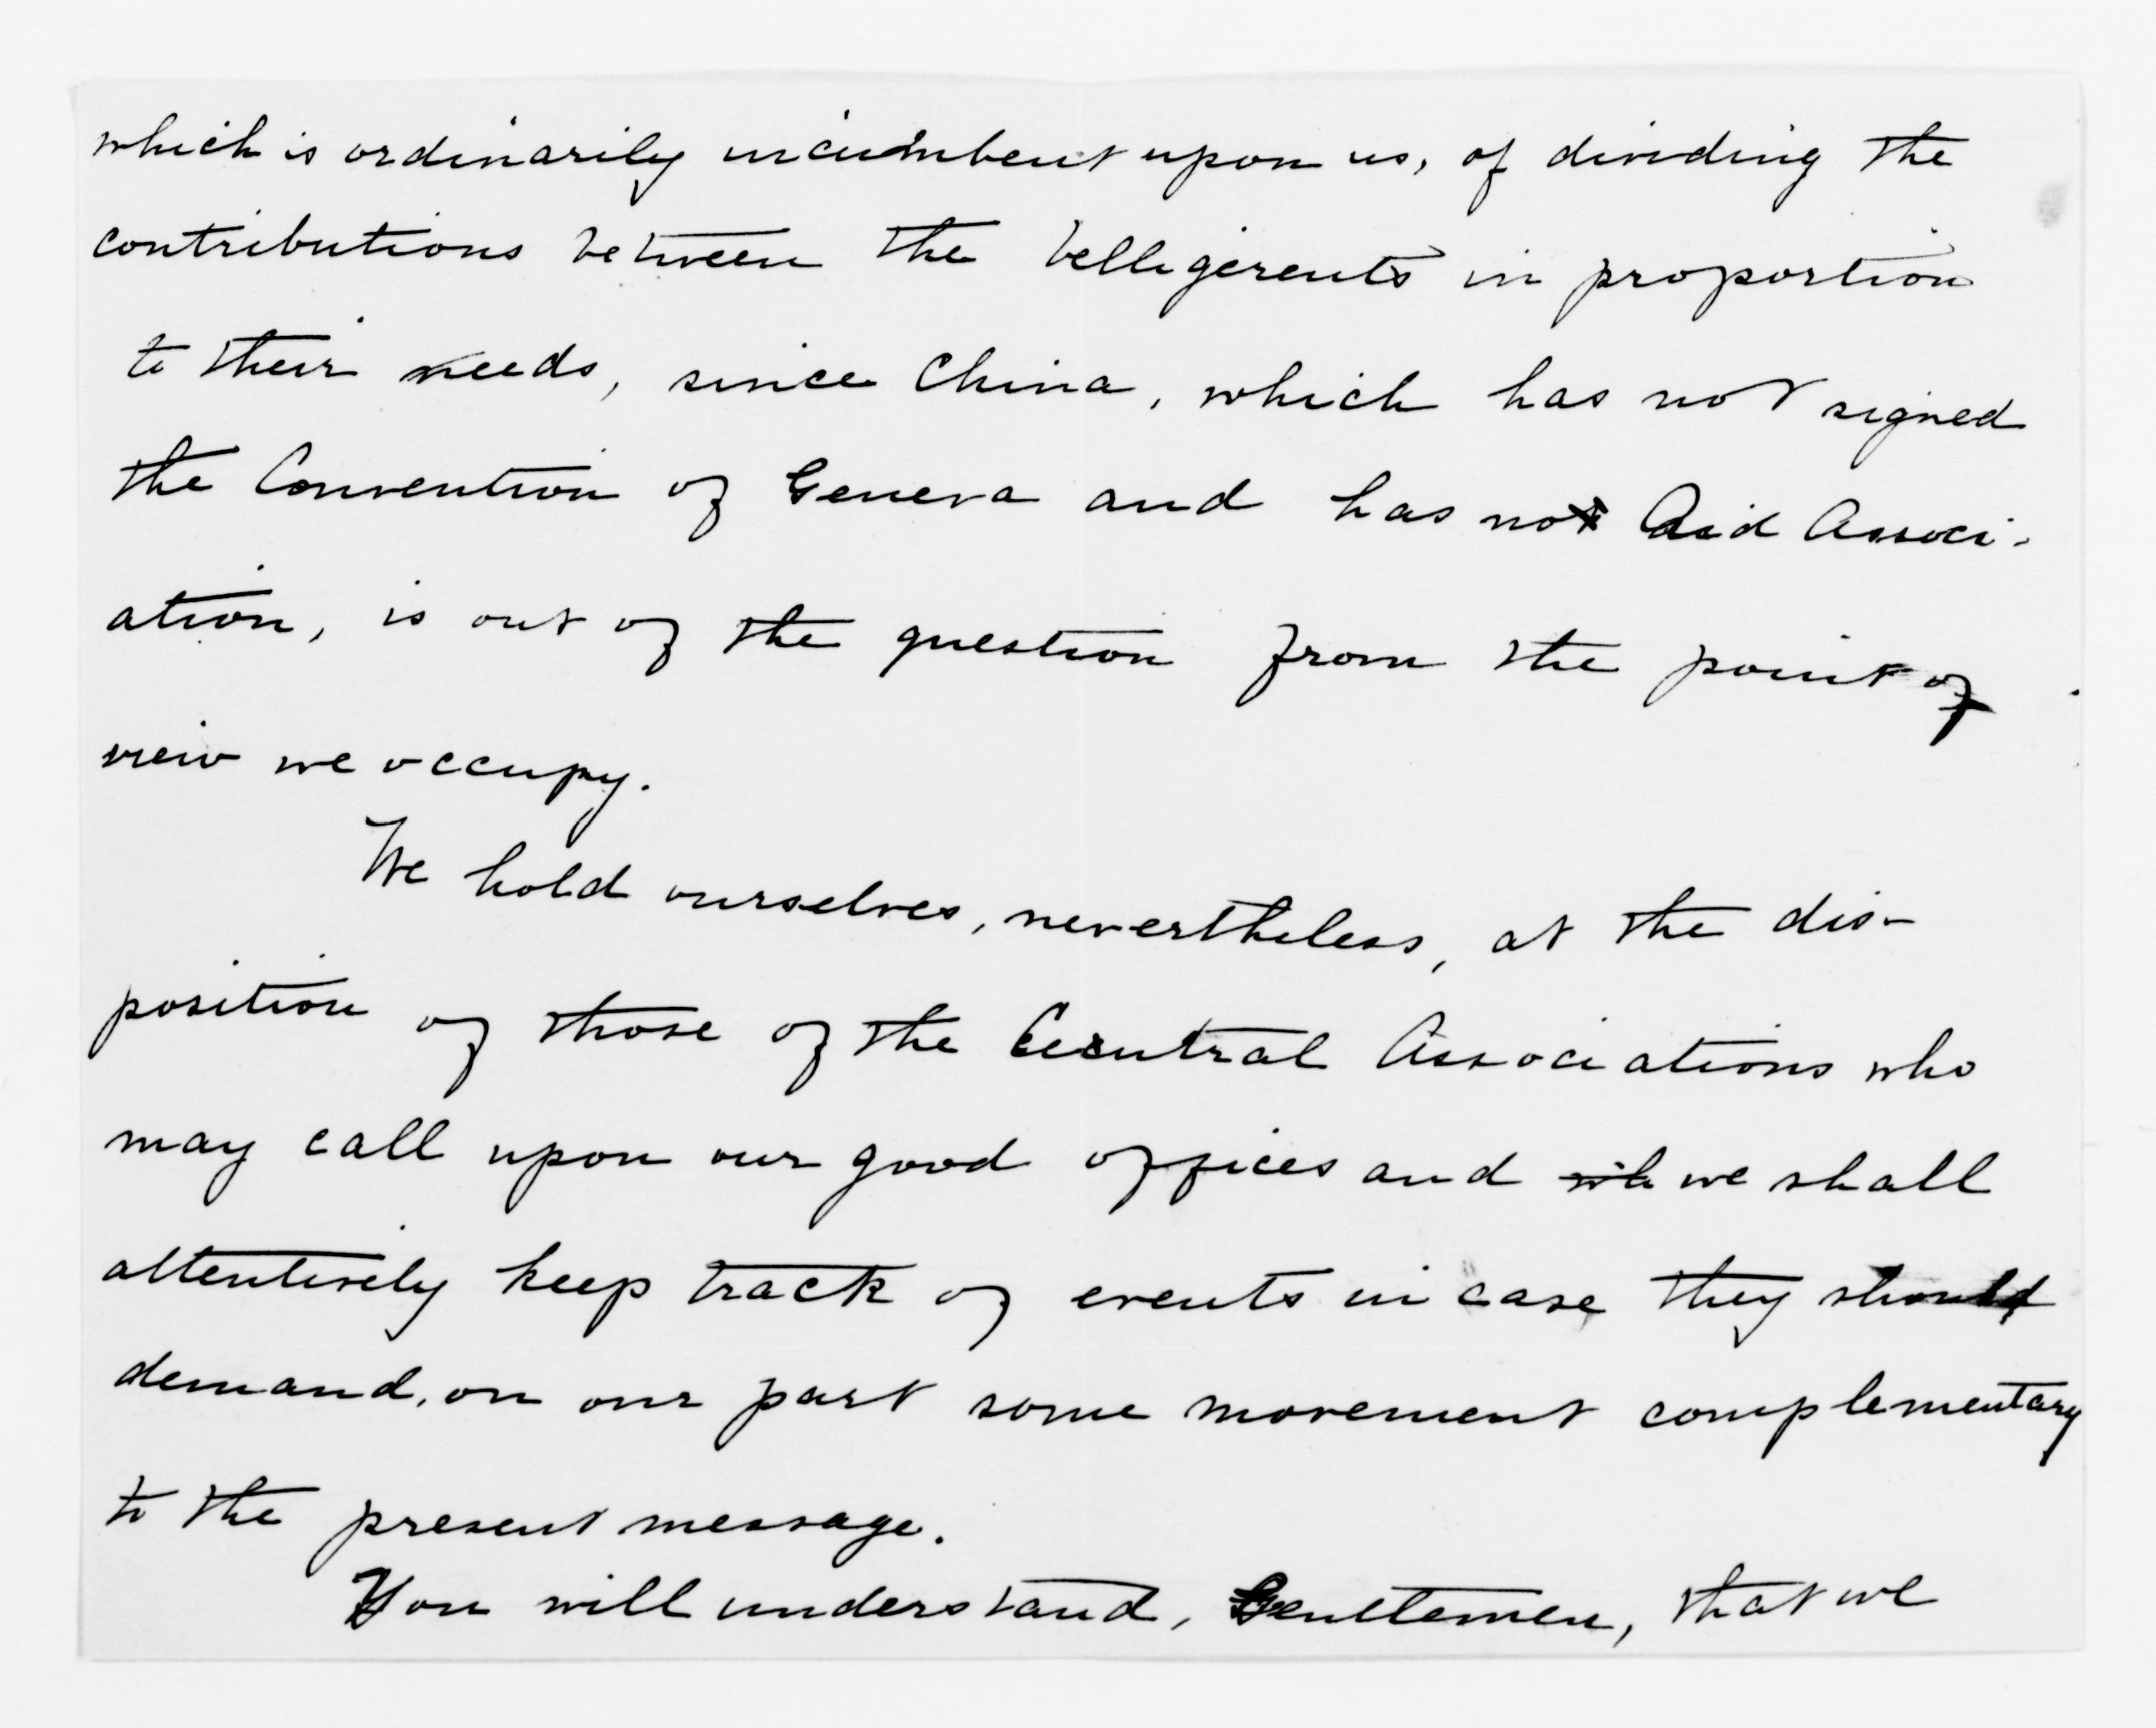 which is ordinarily incumbent upon us, of dividing the
contributions between the belligerents in proportion
to their needs, since China, which has not signed
the Convention of Geneva and has no Aid Associ-
ation, is out of the question from the point of
view we occupy.
We hold ourselves, nevertheless, at the dis-
position of those of the Central Associations who
may call upon our good offices and we shall
attentively keep track of events in case they should
demand, on our part some movement complementary
to the present message.
You will understand, Gentlemen, that we